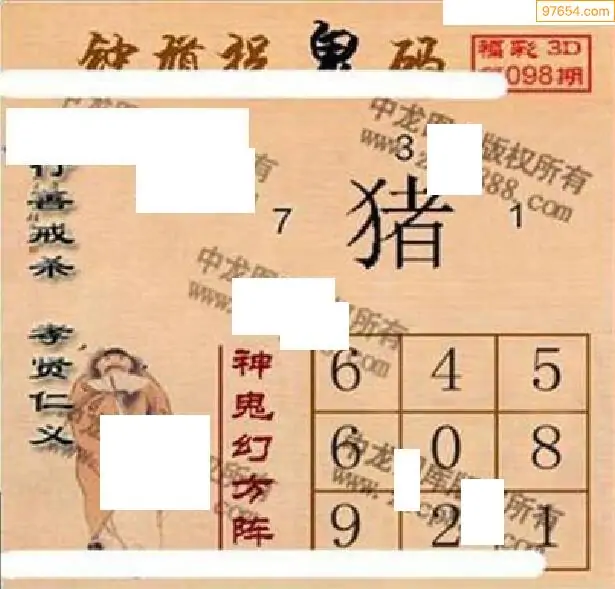 97654.com
钟馗捉鬼码
福彩3D
098期
行善戒杀 孝贤仁义
3
7 猪 1
神鬼幻方阵
6 4 5
6 0 8
9 2 1
中龙
版权所有
www.
88.com
中龙图
所有
www.
中龙图库版权所有